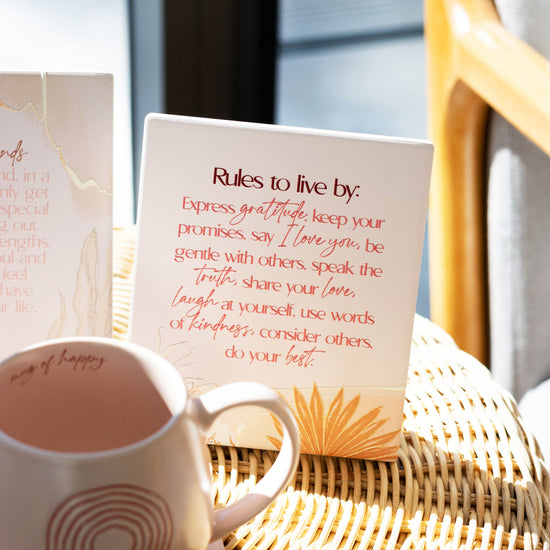 nds
nd, in a
only get
special
g out
engths,
oul and
feel
have
r life.
Rules to live by:
Express gratitude, keep your
promises, say I love you, be
gentle with others, speak the
truth, share your love,
laugh at yourself, use words
of kindness, consider others,
do your best.
mug of happy